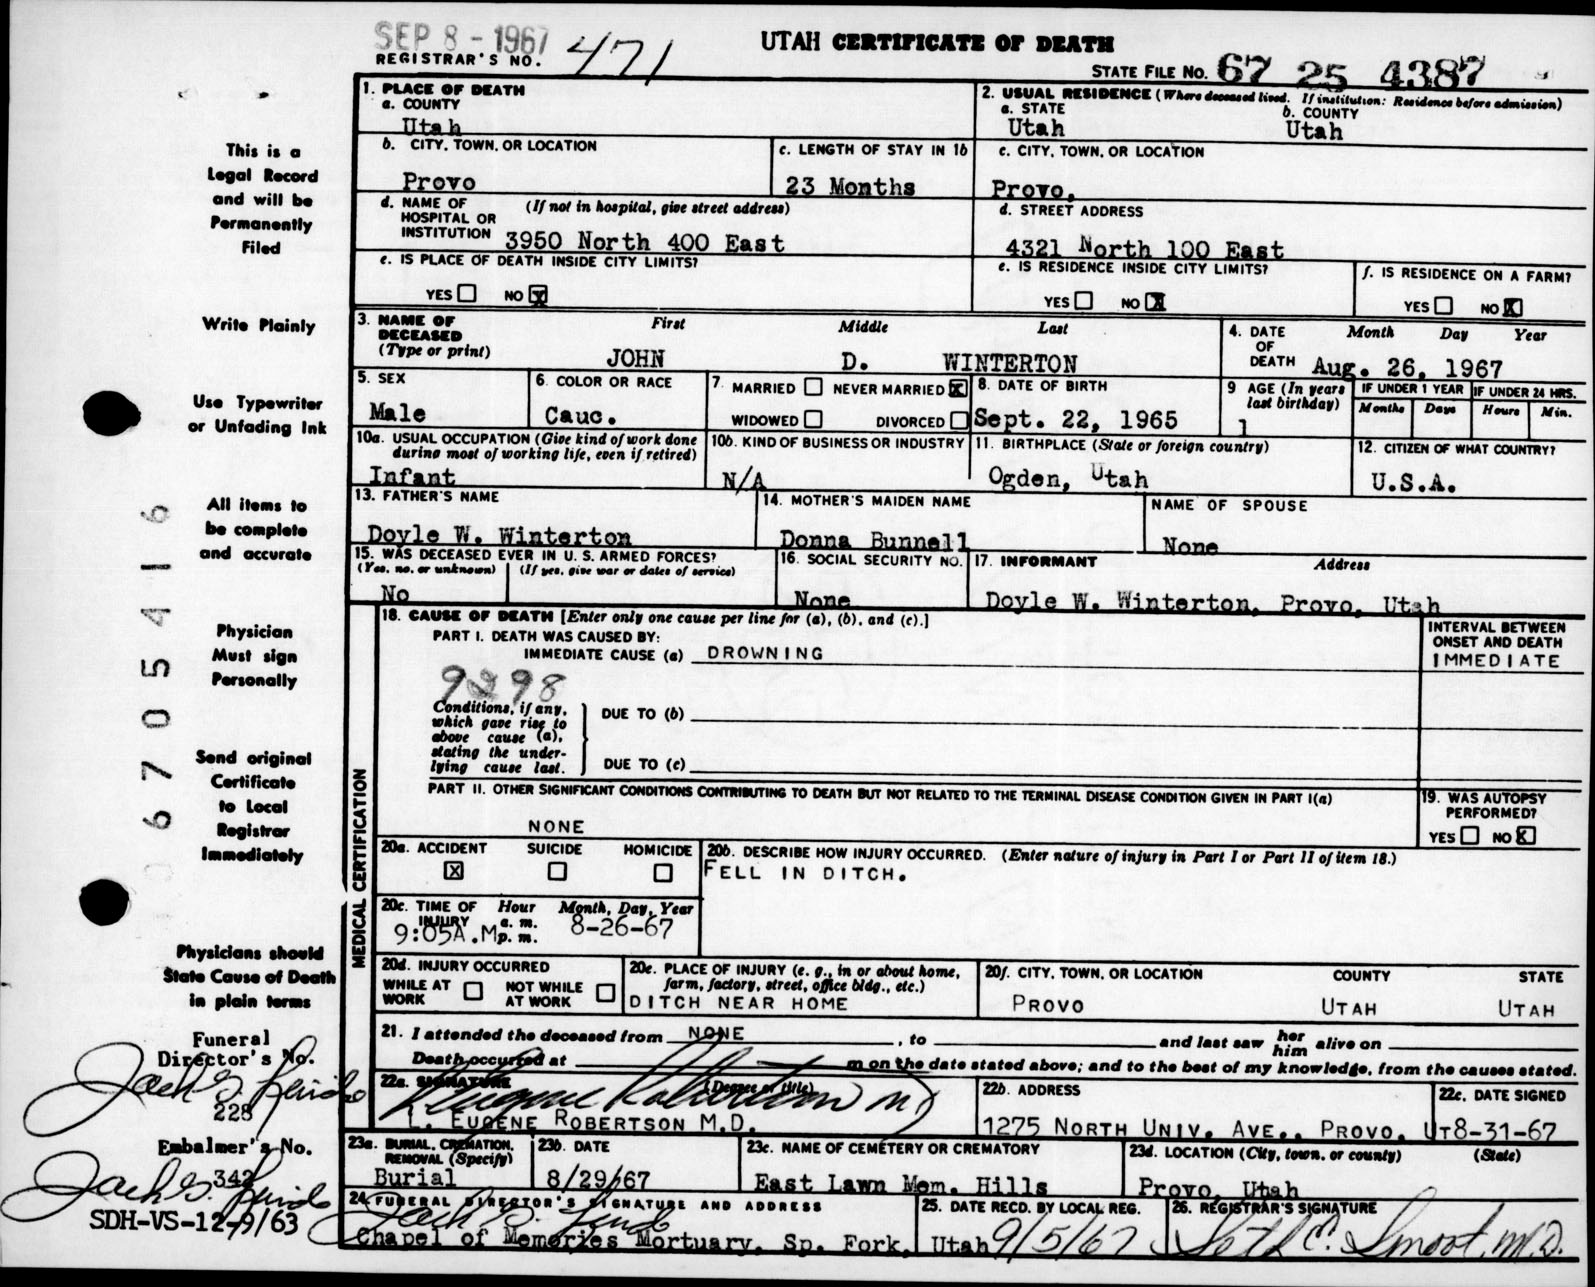 SEP 8 - 1967
REGISTRAR'S NO. 471
UTAH CERTIFICATE OF DEATH
STATE FILE NO. 67 25 4387
This is a
Legal Record
and will be
Permanently
Filed
Write Plainly
Use Typewriter
or Unfading Ink
All items to
be complete
and accurate
Physician
Must sign
Personally
Send original
Certificate
to Local
Registrar
Immediately
Physicians should
State Cause of Death
in plain terms
Funeral
Director's No.
228
Embalmer's No.
342
SDH-VS-12-9/63
6705416
1. PLACE OF DEATH
a. COUNTY
Utah
2. USUAL RESIDENCE (Where deceased lived. If institution: Residence before admission)
a. STATE b. COUNTY
Utah Utah
b. CITY, TOWN, OR LOCATION
Provo
c. LENGTH OF STAY IN 1b
23 Months
c. CITY, TOWN, OR LOCATION
Provo,
d. NAME OF (If not in hospital, give street address)
HOSPITAL OR
INSTITUTION 3950 North 400 East
d. STREET ADDRESS
4321 North 100 East
e. IS PLACE OF DEATH INSIDE CITY LIMITS?
YES NO X
e. IS RESIDENCE INSIDE CITY LIMITS?
YES NO X
f. IS RESIDENCE ON A FARM?
YES NO X
3. NAME OF First Middle Last
DECEASED
(Type or print) JOHN D. WINTERTON
4. DATE Month Day Year
OF
DEATH Aug. 26, 1967
5. SEX
Male
6. COLOR OR RACE
Cauc.
7. MARRIED NEVER MARRIED X
WIDOWED DIVORCED
8. DATE OF BIRTH
Sept. 22, 1965
9 AGE (In years
last birthday)
1
IF UNDER 1 YEAR IF UNDER 24 HRS.
Months Days Hours Min.
10a. USUAL OCCUPATION (Give kind of work done
during most of working life, even if retired)
Infant
10b. KIND OF BUSINESS OR INDUSTRY
N/A
11. BIRTHPLACE (State or foreign country)
Ogden, Utah
12. CITIZEN OF WHAT COUNTRY?
U.S.A.
13. FATHER'S NAME
Doyle W. Winterton
14. MOTHER'S MAIDEN NAME
Donna Bunnell
NAME OF SPOUSE
None
15. WAS DECEASED EVER IN U. S. ARMED FORCES?
(Yes, no, or unknown) (If yes, give war or dates of service)
No
16. SOCIAL SECURITY NO.
None
17. INFORMANT Address
Doyle W. Winterton, Provo, Utah
MEDICAL CERTIFICATION
18. CAUSE OF DEATH [Enter only one cause per line for (a), (b), and (c).]
PART I. DEATH WAS CAUSED BY:
IMMEDIATE CAUSE (a) DROWNING
INTERVAL BETWEEN
ONSET AND DEATH
IMMEDIATE
Conditions, if any,
which gave rise to
above cause (a),
stating the under-
lying cause last.
DUE TO (b)
DUE TO (c)
PART II. OTHER SIGNIFICANT CONDITIONS CONTRIBUTING TO DEATH BUT NOT RELATED TO THE TERMINAL DISEASE CONDITION GIVEN IN PART I(a)
NONE
19. WAS AUTOPSY
PERFORMED?
YES NO X
20a. ACCIDENT SUICIDE HOMICIDE
X
20b. DESCRIBE HOW INJURY OCCURRED. (Enter nature of injury in Part I or Part II of item 18.)
FELL IN DITCH.
20c. TIME OF Hour Month, Day, Year
INJURY a. m.
9:05A.M p. m. 8-26-67
20d. INJURY OCCURRED
WHILE AT WORK NOT WHILE AT WORK
20e. PLACE OF INJURY (e. g., in or about home,
farm, factory, street, office bldg., etc.)
DITCH NEAR HOME
20f. CITY, TOWN, OR LOCATION COUNTY STATE
PROVO UTAH UTAH
21. I attended the deceased from NONE, to and last saw her him alive on
Death occurred at m on the date stated above; and to the best of my knowledge, from the causes stated.
22a. SIGNATURE (Degree or title)
L. EUGENE ROBERTSON M.D.
22b. ADDRESS
1275 NORTH UNIV. AVE., PROVO, UT
22c. DATE SIGNED
8-31-67
23a. BURIAL, CREMATION,
REMOVAL (Specify)
Burial
23b. DATE
8/29/67
23c. NAME OF CEMETERY OR CREMATORY
East Lawn Mem. Hills
23d. LOCATION (City, town, or county) (State)
Provo, Utah
24 FUNERAL DIRECTOR'S SIGNATURE AND ADDRESS
Chapel of Memories Mortuary, Sp. Fork, Utah
25. DATE RECD. BY LOCAL REG.
9/5/67
26. REGISTRAR'S SIGNATURE
Seth E. Smoot, M.D.